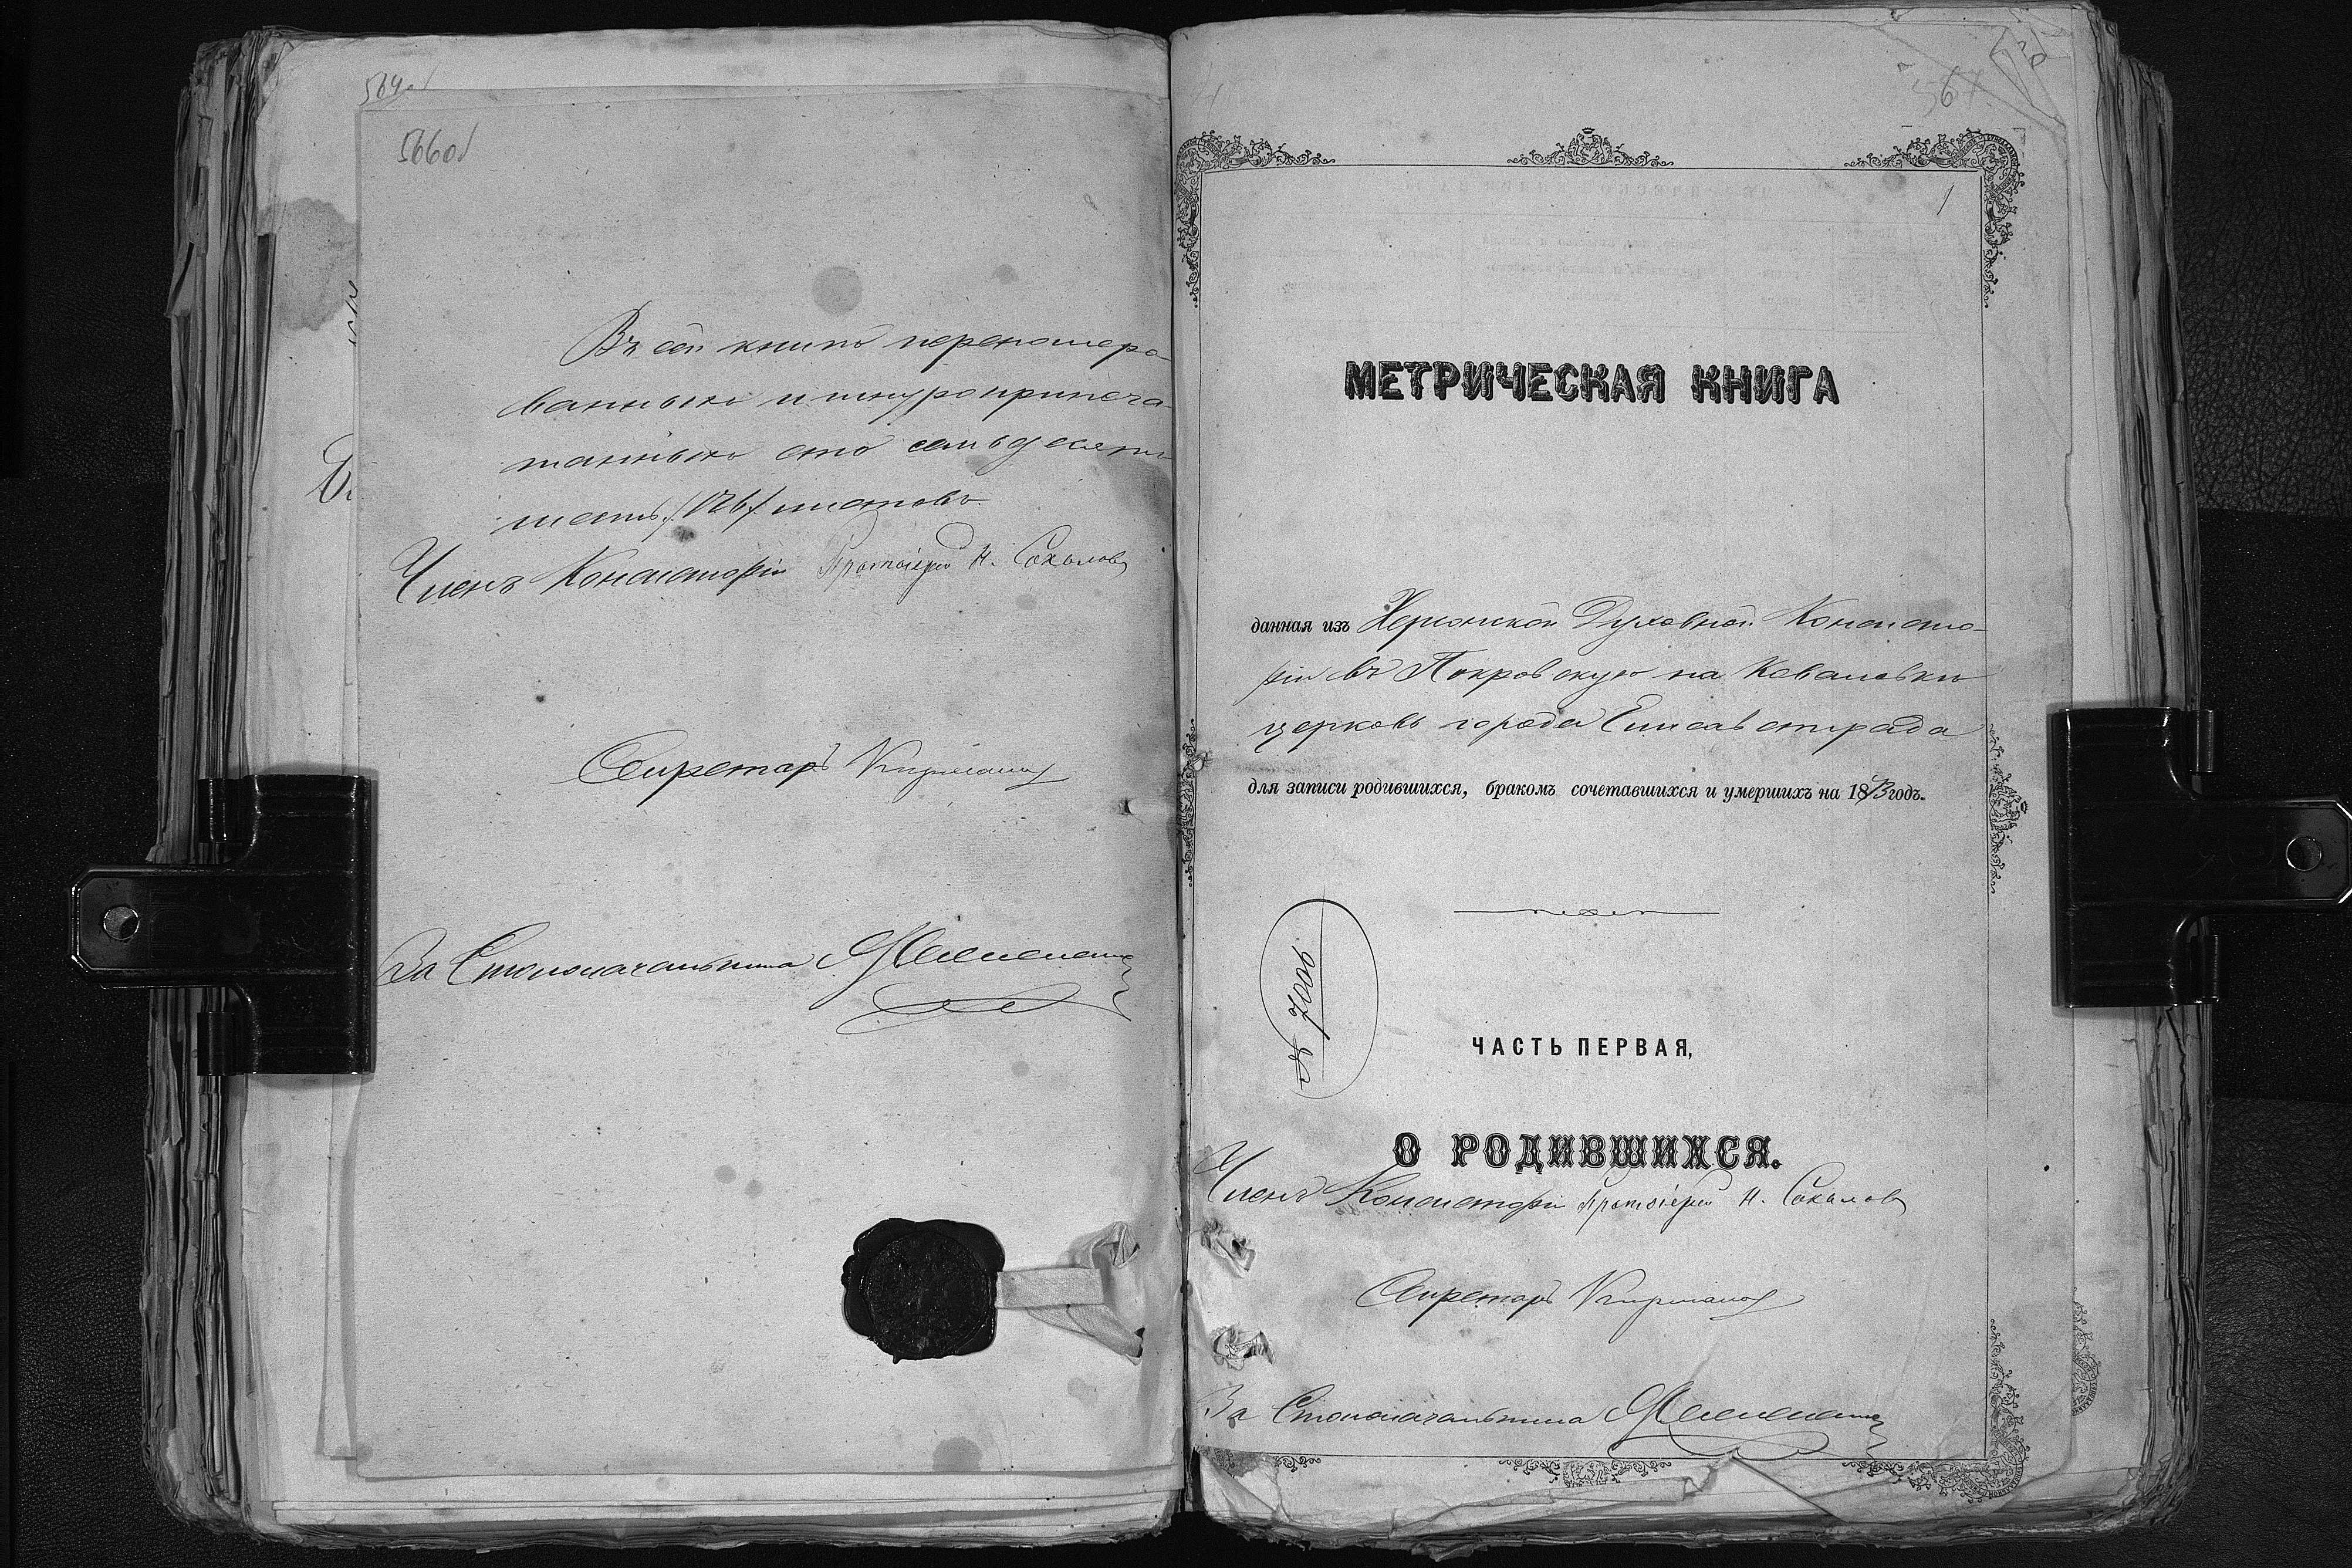 566об
Въ сей книгѣ перенумеро-
ванныхъ и шнуроприпеча-
танныхъ сто семьдесятъ
шесть /176/ листовъ.
Членъ Консисторіи Протоіерей Н. Соколовъ
Секретарь
За Столоначальника
567
1
МЕТРИЧЕСКАЯ КНИГА
данная изъ Херсонской Духовной Консисто-
ріи въ Покровскую на Ковалевкѣ
церковь города Елисаветграда
для записи родившихся, бракомъ сочетавшихся и умершихъ на 18 годъ.
№ 7006
ЧАСТЬ ПЕРВАЯ,
О РОДИВШИХСЯ.
Членъ Консисторіи Протоіерей Н. Соколовъ
Секретарь
За Столоначальника